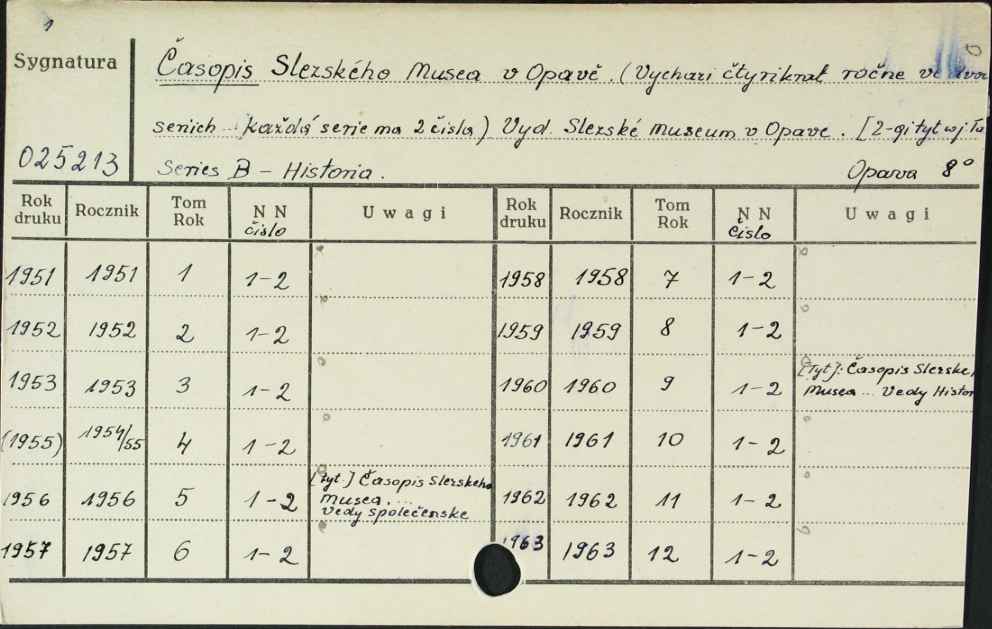 1
Sygnatura
Časopis Slezského Musea v Opavě. (Vychazi čtyriknat ročne ve dvou
seriich každá serie ma 2 čísla) Vyd. Slezské Museum v Opave. [2-gi tyt wj
025213
Series B – Historia.
Opava 8°
Rok druku Rocznik Tom Rok N N čislo Uwagi Rok druku Rocznik Tom Rok N N Čislo Uwagi
1951 1951 1 1-2 1958 1958 7 1-2
1952 1952 2 1-2 1959 1959 8 1-2
1953 1953 3 1-2 1960 1960 9 1-2 [Tyt]: Časopis Slezske
Musea ... Vedy Histor
(1955) 1954/55 4 1-2 1961 1961 10 1-2
1956 1956 5 1-2 [Tyt] Časopis Slezskeho
Musea ....
Vedy společenske
1962 1962 11 1-2
1957 1957 6 1-2 1963 1963 12 1-2